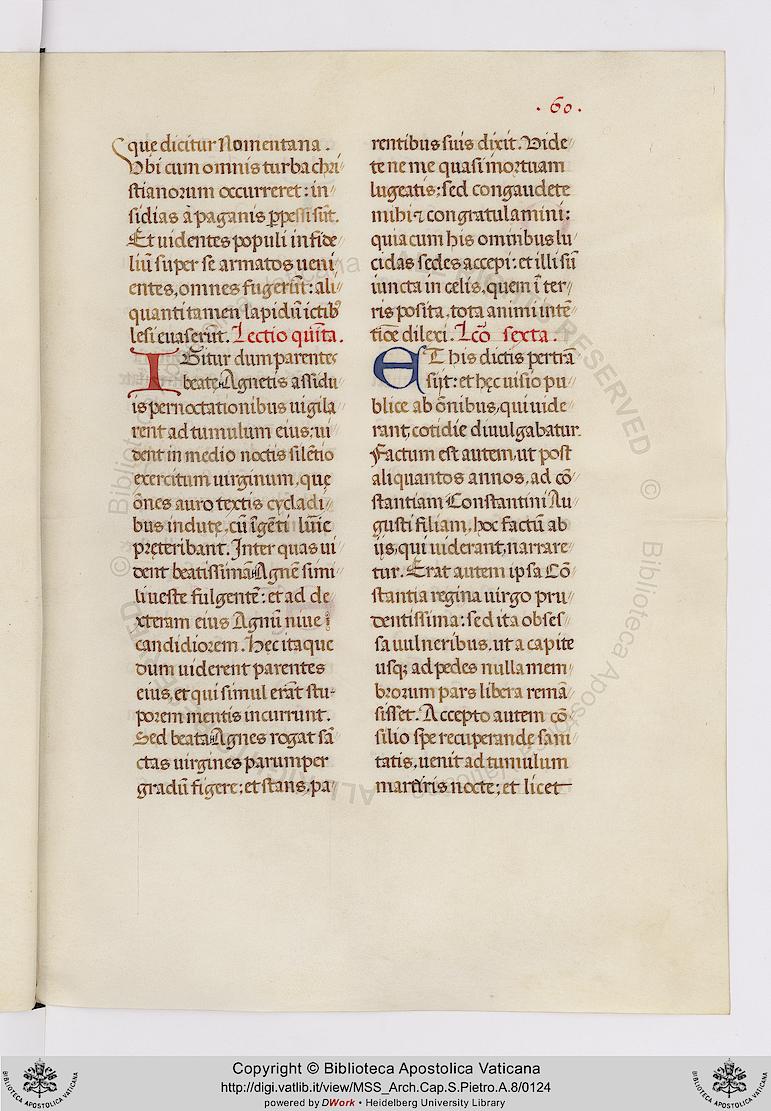 .60.
que dicitur Nomentana.
Vbi cum omnis turba chri
stianorum occurreret: in
sidias a paganis ꝑpessi sūt.
Et uidentes populi infide
liū super se armatos ueni
entes, omnes fugerūt: ali
quanti tamen lapidū ictibꝰ
lesi euaserūt. Lectio quīta.
IGitur dum parentes
beatę Agnetis assidu
is pernoctationibus uigila
rent ad tumulum eius: ui
dent in medio noctis silētio
exercitum uirginum, quę
ōnes auro textis cycladi
bus indutę, cū īgēti lūie
pręteribant. Inter quas ui
dent beatissimā Agnē simi
li ueste fulgentē: et ad de
xteram eius Agnū niue
candidiorem. Hęc itaque
dum uiderent parentes
eius, et qui simul erāt stu
porem mentis incurrunt.
Sed beata Agnes rogat sā
ctas uirgines parumper
gradū figere: et stans, pa
rentibus suis dixit. Vide
te ne me quasi mortuam
lugeatis: sed congaudete
mihi ⁊ congratulamini:
quia cum his omnibus lu
cidas sedes accepi: et illi sū
iuncta in celis, quem ī ter
ris posita, tota animi intē
tiōe dilexi. Lcō sexta.
ET his dictis pertrā
sijt: et hęc uisio pu
blice ab ōnibus, qui uide
rant, cotidie diuulgabatur.
Factum est autem, ut post
aliquantos annos, ad cō
stantiam Constantini Au
gusti filiam, hoc factū ab
ijs, qui uiderant, narrare
tur. Erat autem ipsa Cō
stantia regina uirgo pru
dentissima: sed ita obses
sa uulneribus, ut a capite
usqꝫ ad pedes nulla mem
brorum pars libera remā
sisset. Accepto autem cō
silio spe recuperande sani
tatis, uenit ad tumulum
martiris nocte: et licet
Copyright © Biblioteca Apostolica Vaticana
http://digi.vatlib.it/view/MSS_Arch.Cap.S.Pietro.A.8/0124
powered by DWork • Heidelberg University Library